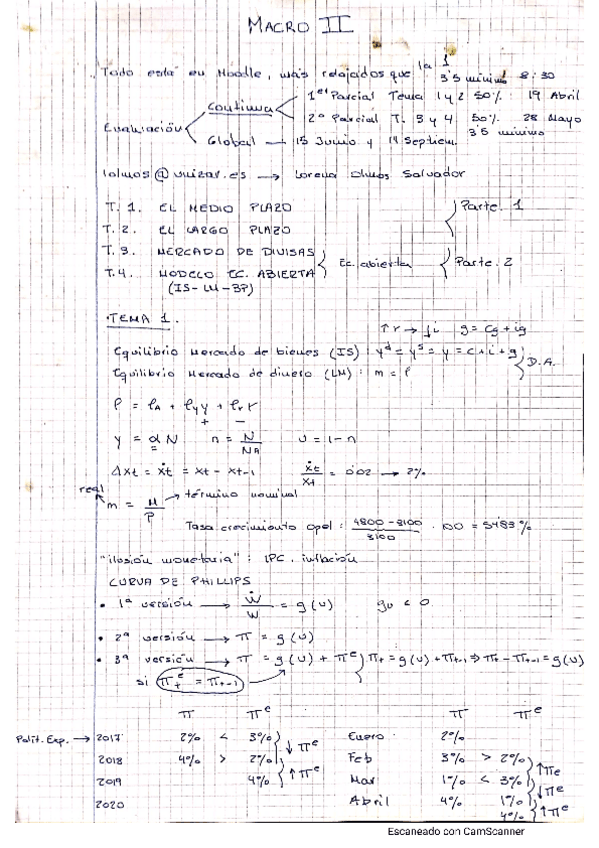 MACRO II
Todo está en Moodle, más relajados que la 1
3'5 mínimo 8:30
Evaluación
Continua
1er Parcial Tema 1 y 2 50% 19 Abril
2º Parcial T. 3 y 4 50% 28 Mayo
3'5 mínimo
Global → 15 Junio y 14 Septiem.
lolmos@unizar.es → Lorena Olmos Salvador
T. 1. EL MEDIO PLAZO
T. 2. EL LARGO PLAZO
Parte. 1
T. 3. MERCADO DE DIVISAS
T. 4. MODELO EC. ABIERTA
(IS-LM-BP)
Ec. abierta
Parte. 2
TEMA 1.
↑r → ↓i g = cg + ig
Equilibrio Mercado de bienes (IS): y^d = y^s = y = c + i + g
Equilibrio Mercado de dinero (LM): m = l
D.A.
l = l_A + l_y y + l_r r
+ -
y = α N n = N/N_A u = 1 - n
Δxt = ẋt = xt - xt-1 ẋt/xt = 0'02 → 2%
real
m = M/P → término nominal
Tasa crecimiento Opel: (4800 - 3100)/3100 · 100 = 54'83%
"ilusión monetaria": IPC, inflación
CURVA DE PHILLIPS
• 1ª versión → Ẇ/W = g(u) gu < 0
• 2ª versión → π = g(u)
• 3ª versión → π = g(u) + π^e} πt = g(u) + πt-1 ⇒ πt - πt-1 = g(u)
si π^e_t = πt-1
π π^e π π^e
Polit. Exp. → 2017 2% < 3% Enero 2%
↓π^e
2018 4% > 2% Feb 3% > 2%
↑π^e ↑π^e
2019 4% Mar 1% < 3%
↓π^e
2020 Abril 4% 1%
4% ↑π^e
Escaneado con CamScanner